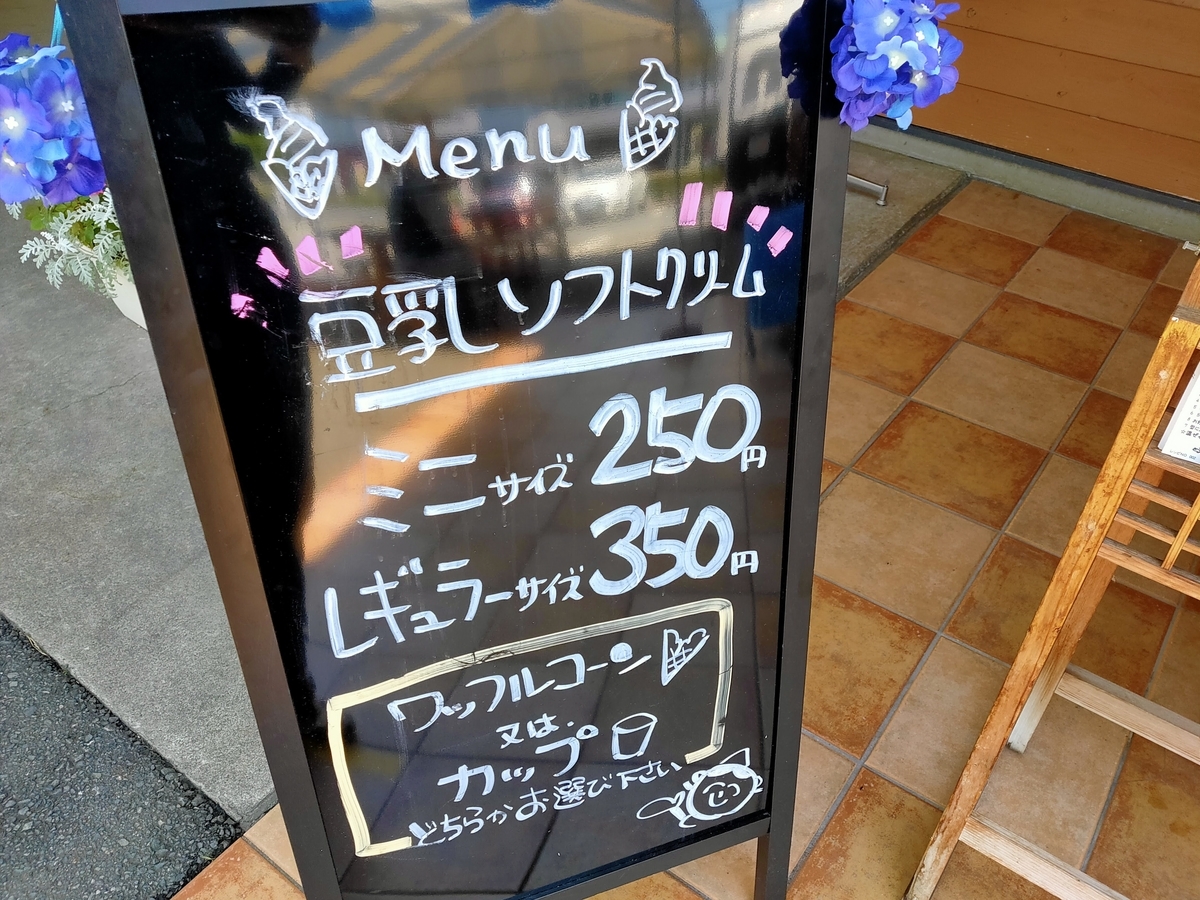 Menu
豆乳ソフトクリーム
ミニサイズ 250円
レギュラーサイズ 350円
ワッフルコーン
又は
カップ
どちらかお選び下さい